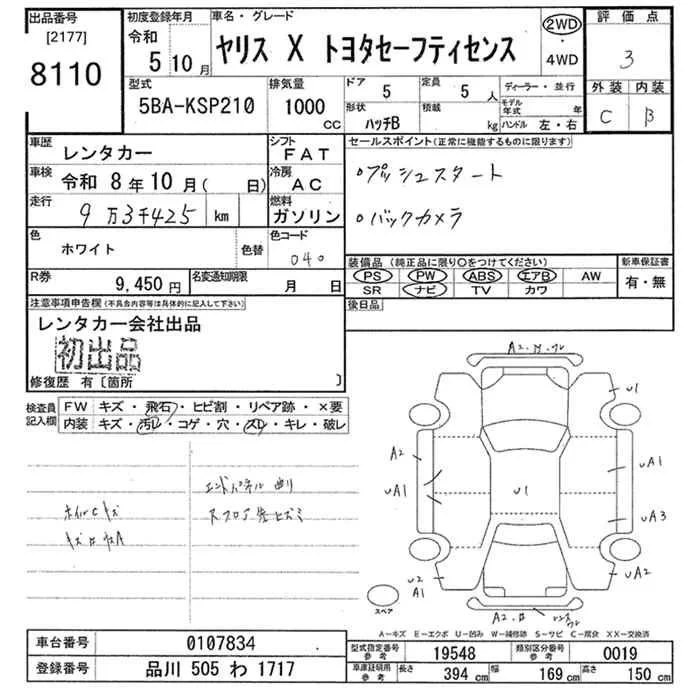 出品番号 初度登録年月 車名・グレード 評価点
[2177] 令和 ヤリス X トヨタセーフティセンス 2WD ・ 4WD
8110 5 10月 3
型式 排気量 ドア 5 定員 5人 ディーラー・並行 外装 内装
5BA-KSP210 1000 CC 形状 ハッチB 積載 kg モデル年式 年 C B
ハンドル 左・右
車歴 レンタカー シフト FAT セールスポイント(正常に機能するものに限ります)
車検 令和 8年10月( 日) 冷房 AC プッシュスタート
走行 9万3千425 km 燃料 ガソリン バックカメラ
色 ホワイト 色替 色コード 040
装備品(純正品に限り○をつけてください) 新車保証書
R券 9,450円 名変通知期限 月 日 PS PW ABS エアB AW 有・無
SR ナビ TV カワ
注意事項申告欄(不具合内容等は具体的に記入して下さい) 後日品
レンタカー会社出品
初出品
修復歴 有〔箇所 〕
検査員記入欄 FW キズ・飛石・ヒビ割・リペア跡・×要
内装 キズ・汚レ・コゲ・穴・スレ・キレ・破レ
エンドパネル曲り
ホイルCキズ
U1
A2
UA1
UA1
U1
UA3
U2
A1
UA2
スペア
A-キズ E-エクボ U-凹み W-補修跡 S-サビ C-腐食 XX-交換済
車台番号 0107834 型式指定番号 参考 19548 類別区分番号 参考 0019
登録番号 品川 505 わ 1717 車庫証明用 参考 長さ 394 cm 幅 169 cm 高さ 150 cm